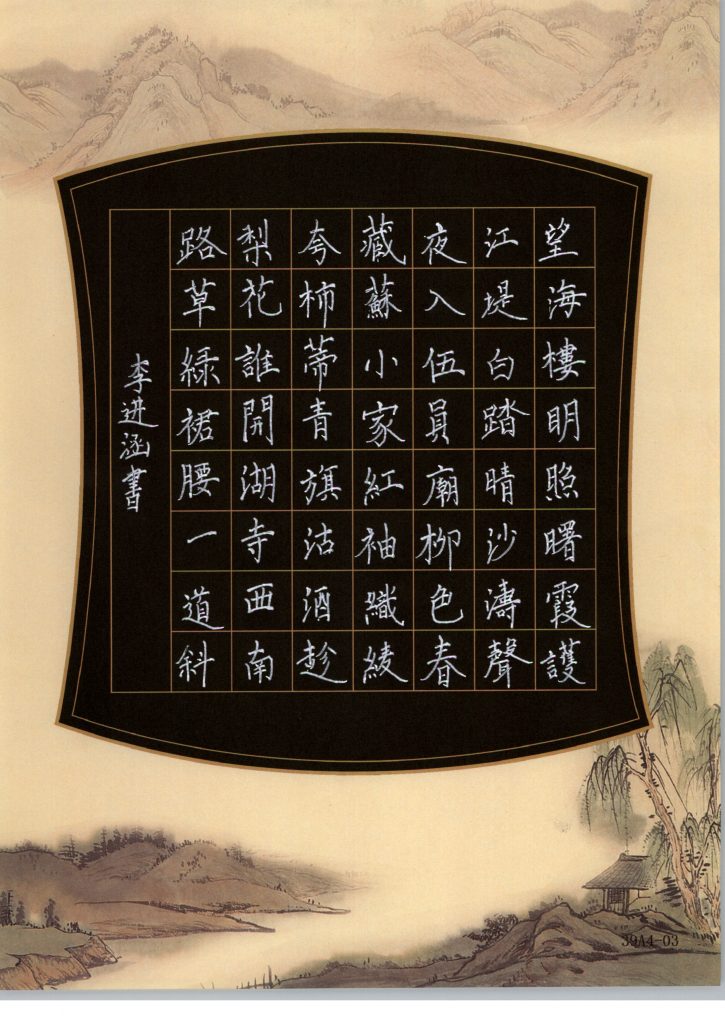 望海樓明照曙霞護
江堤白踏晴沙濤聲
夜入伍員廟柳色春
藏蘇小家紅袖織綾
夸柿蒂青旗沽酒趁
梨花誰開湖寺西南
路草綠裙腰一道斜
李进涵書
39A4-03